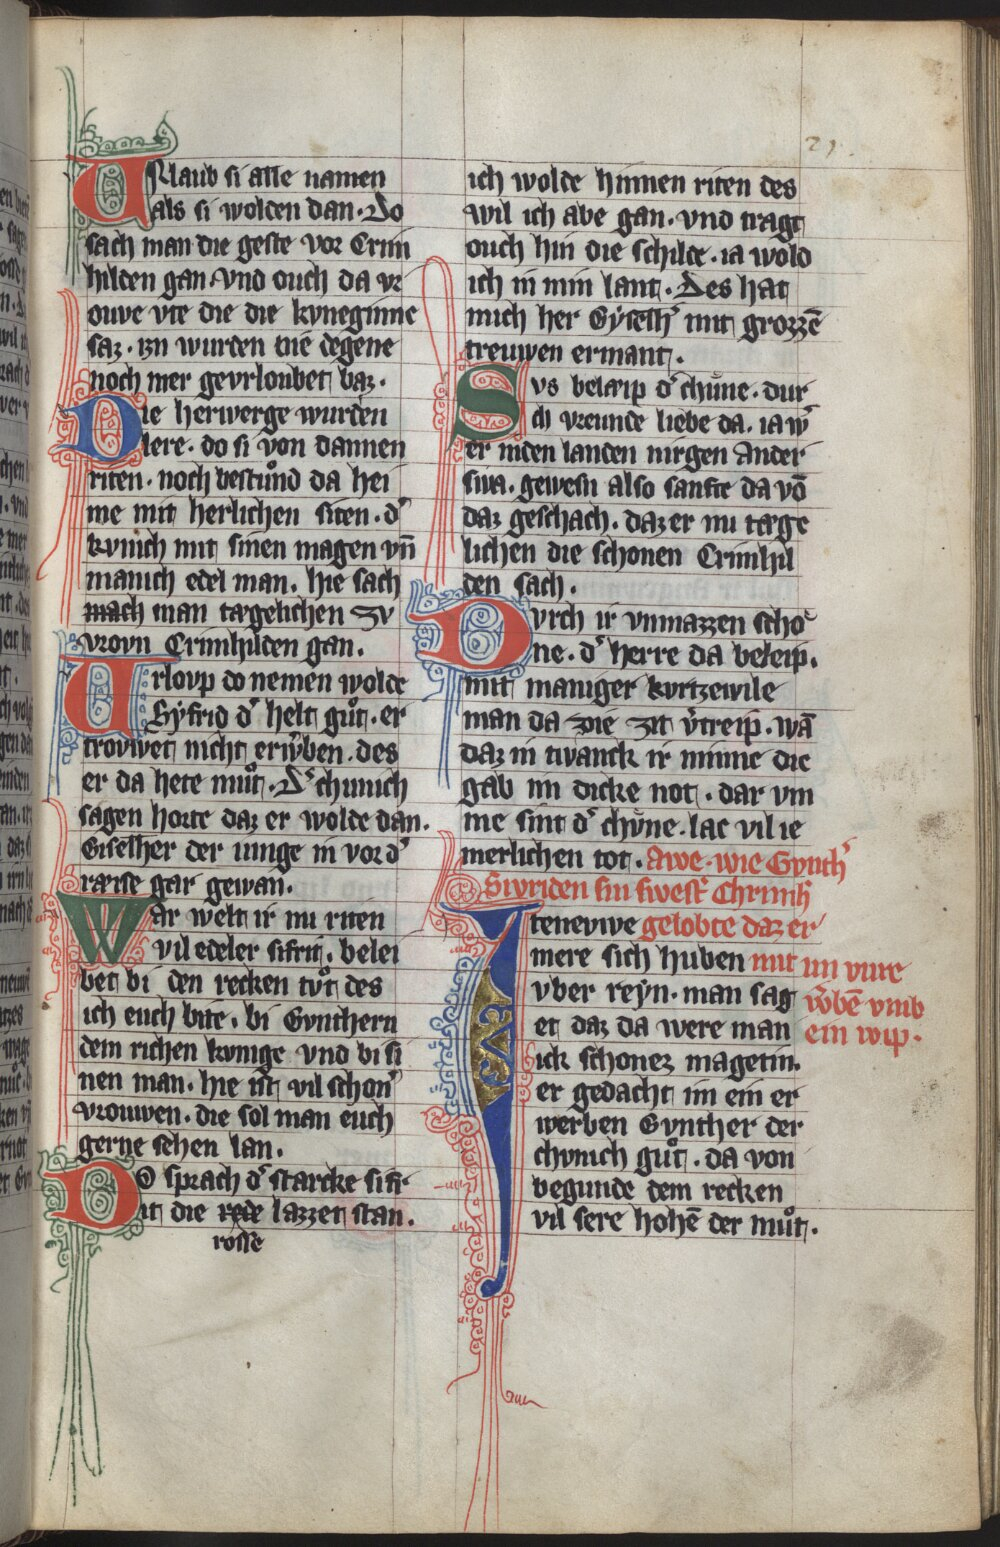 21.
Vrlaub si alle namen
als si wolden dan. Do
sach man die geste vor Crim
hilden gan. vnd ouch da vr
ouve vte die die kvneginne
saz. izn wurden nie degene
noch mer gevrloubet baz.
Die herwerge wurden
lere. do si von dannen
riten. noch bestůnd da hei
me mit herlichen siten. d̾
kvnich mit sinen magen vn̄
manich edel man. hie sach
mach man tægelichen zv
vrovn Crimhilden gan.
Vrloup do nemen wolde
Syfrid d̾ helt gůt. er
trovwet nicht erw̾ben. des
er da hete můt. D̾ chunich
sagen horte daz er wolde dan.
Giselher der iunge in vor d̾
raise gar gewan.
War welt ir nu riten
vil edeler sifrit. belei
bet bi den recken tůt des
ich euch bite. bi Gvnthern
dem richen kvnige vnd bi si
nen man. hie ist vil schon̾
vrouwen. die sol man euch
gerne sehen lan.
Do sprach d̾ starcke sifr
it die rede lazzet stan.
rosse
ich wolde hinnen riten des
wil ich abe gan. vnd tragt
ouch hin die schilde. ia wold
ich in min lant. Des hat
mich her Gyselh̾ mit grozzē
treuwen ermant.
Svs belaip d̾ chůne. dur
ch vreunde liebe da. ia w̾
er inden landen nirgen Ander
swa. gewesn also sanfte da vō
daz geschach. daz er nu tæge
lichen die schonen Crimhil
den sach.
Dvrch ir vnmazzen scho
ne. d̾ herre da beleip.
mit maniger kvrtzewile
man da zie zit v̾treip. wā
daz in twanck ir minne die
gab im dicke not. dar vm
me sint d̾ chůne. lac vil ie
merlichen tot. Awe. wie Gvnth̾
Sivriden sin swest̾ Chrimh
Iteneviwe gelobte daz er
mere sich huben mit im vure
vber reyn. man sag w̾bē vmb
et daz da were man ein wip.
ick schonez magetin.
er gedacht im ein er
werben Gvnther der
chvnich gůt. da von
begunde dem recken
vil sere hohē der můt.